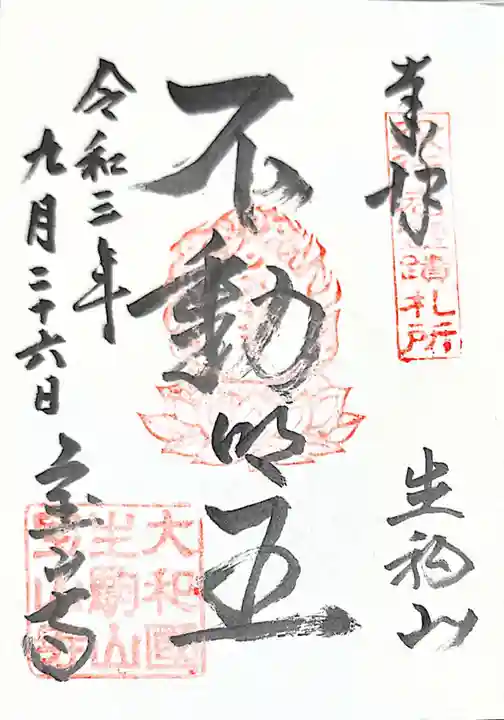 奉拝
蹟札所
生駒山
不動明王
令和三年
九月二十六日
宝山寺
大和國
生駒山